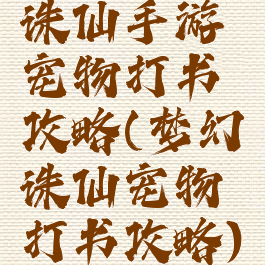 诛仙手游
宠物打书
攻略(梦幻
诛仙宠物
打书攻略)